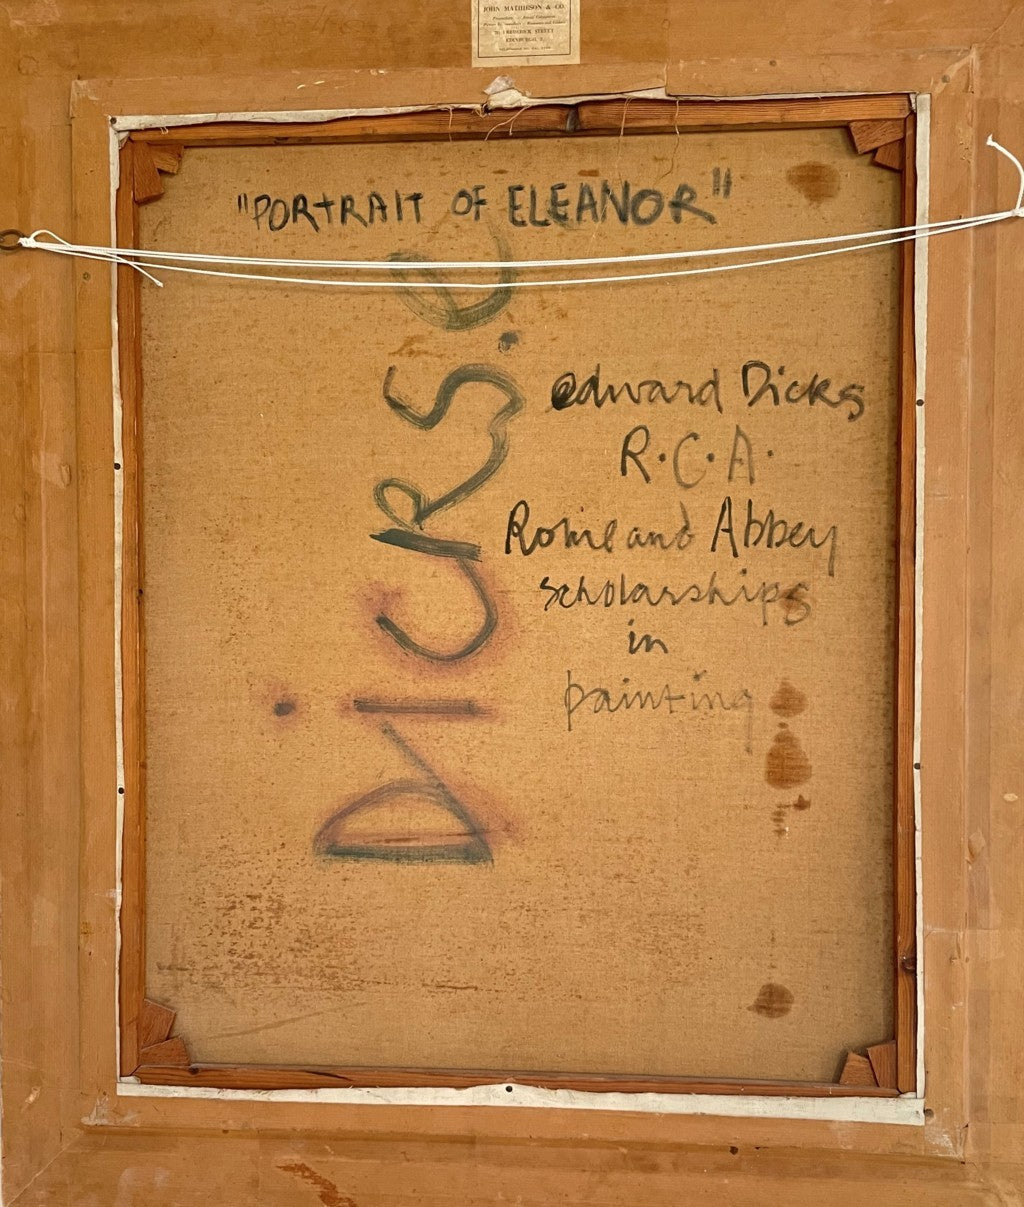 JOHN MATHIESON & CO.
FREDERICK STREET
EDINBURGH, 2.
"PORTRAIT OF ELEANOR"
DiCKS.e
edward Dicks
R.C.A.
Rome and Abbey
scholarships
in
painting